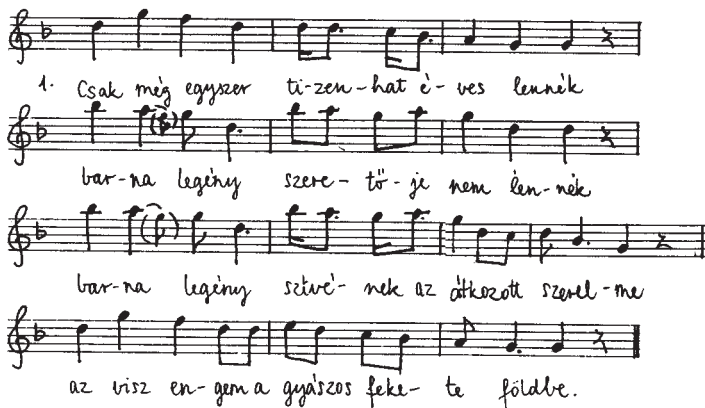 1. Csak még egyszer ti-zen-hat é-ves lennék
bar-na legény szere-tő-je nem len-nék
bar-na legény szívé-nek az átkozott szerel-me
az visz en-gem a gyászos feke-te földbe.